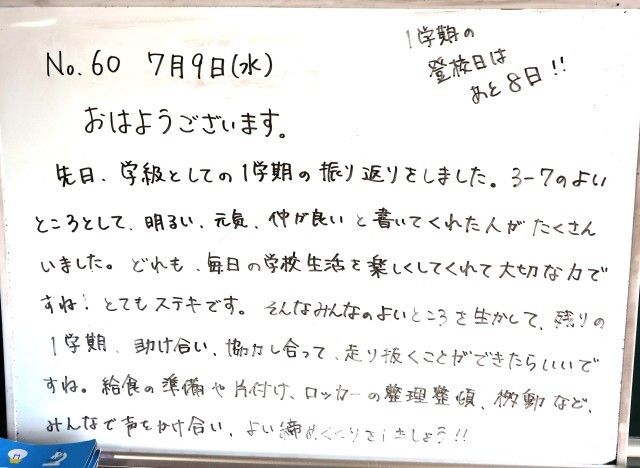 No.60 7月9日(水)
1学期の
登校日は
あと8日!!
おはようございます。
先日、学級としての1学期の振り返りをしました。3-7のよい
ところとして、明るい、元気、仲が良いと書いてくれた人がたくさん
いました。どれも、毎日の学校生活を楽しくしてくれて大切な力で
すね!とてもステキです。そんなみんなのよいところを生かして、残りの
1学期、助け合い、協力し合って、走り抜くことができたらいいで
すね。給食の準備や片付け、ロッカーの整理整頓、移動など、
みんなで声をかけ合い、よい締めくくりをしましょう!!